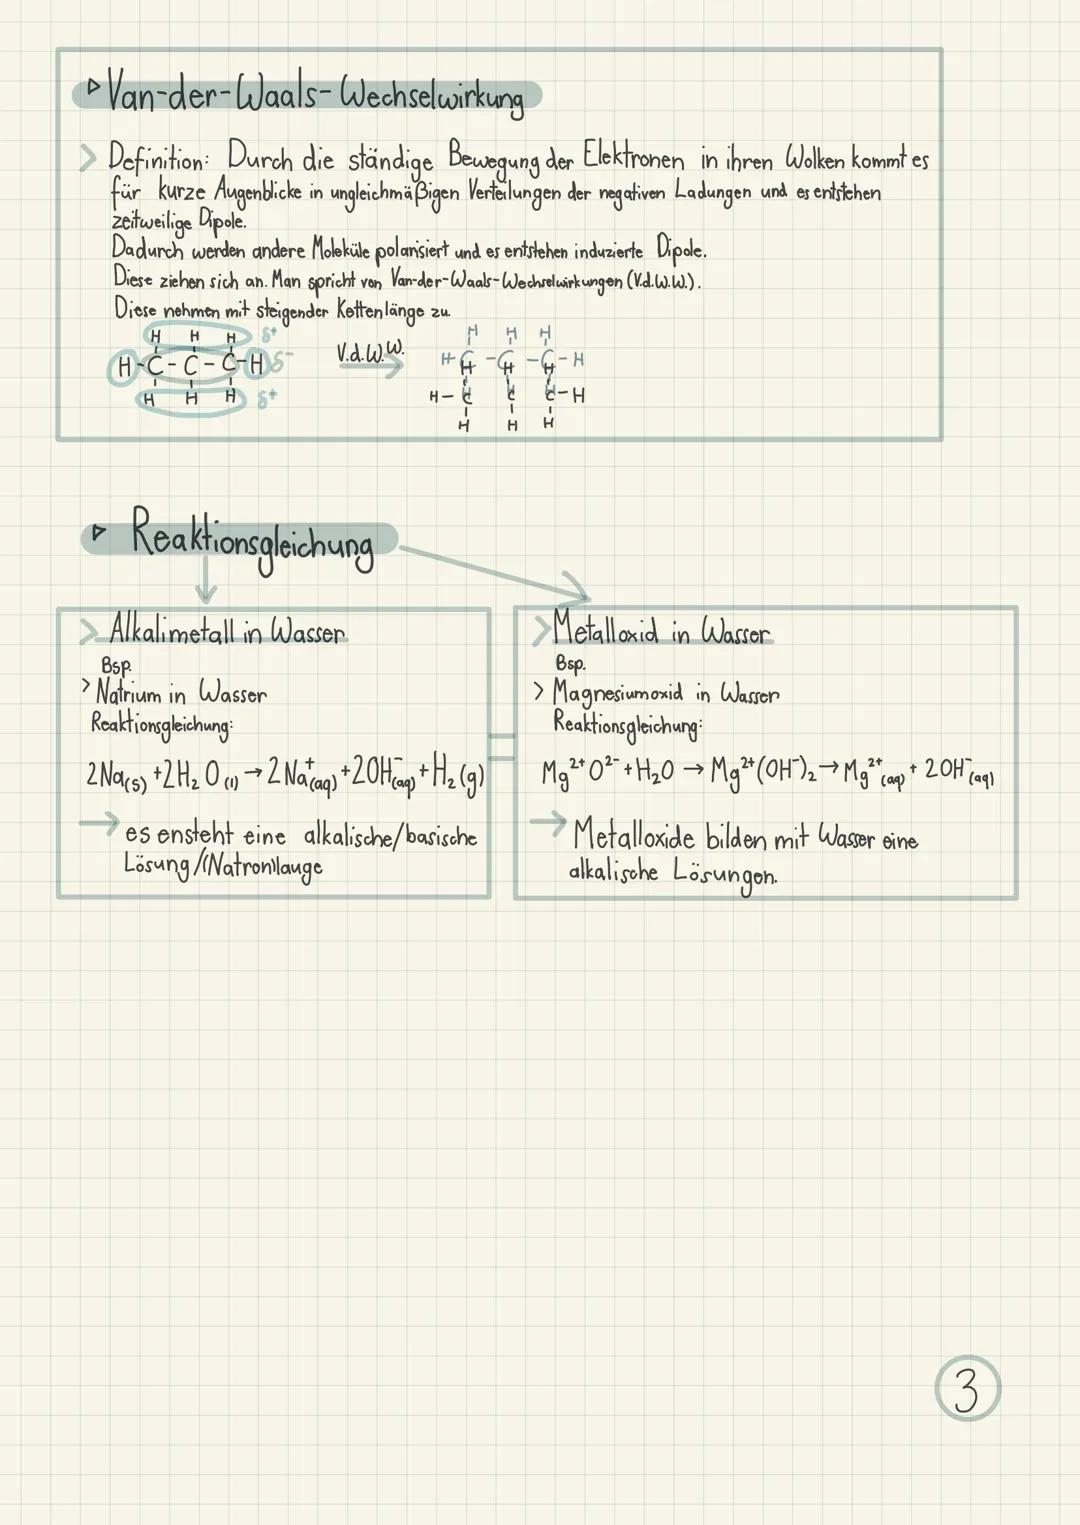 ▷ Van-der-Waals-Wechselwirkung
> Definition: Durch die ständige Bewegung der Elektronen in ihren Wolken kommt es
für kurze Augenblicke in ungleichmäßigen Verteilungen der negativen Ladungen und es entstehen
zeitweilige Dipole.
Dadurch werden andere Moleküle polarisiert und es entstehen induzierte Dipole.
Diese ziehen sich an. Man spricht von Van-der-Waals-Wechselwirkungen (V.d.W.W.).
Diese nehmen mit steigender Kettenlänge zu.
H H H δ+
H-C-C-C-H δ-
H H H δ+
V.d.W.W.
H H H
H-C-C-C-H
H H H
H-C C C-H
H H H
▷ Reaktionsgleichung
> Alkalimetall in Wasser
Bsp.
> Natrium in Wasser
Reaktionsgleichung:
2Na(s) + 2H₂O(l) → 2Na⁺(aq) + 2OH⁻(aq) + H₂(g)
→ es ensteht eine alkalische/basische
Lösung/(Natron)lauge
=
> Metalloxid in Wasser
Bsp.
> Magnesiumoxid in Wasser
Reaktionsgleichung:
Mg²⁺O²⁻ + H₂O → Mg²⁺(OH⁻)₂ → Mg²⁺(aq) + 2OH⁻(aq)
→ Metalloxide bilden mit Wasser eine
alkalische Lösungen.
3